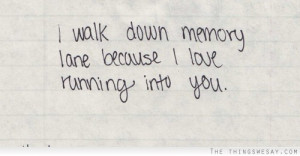 I walk down memory
lane because I love
running into you.
THE THINGSWESAY.COM